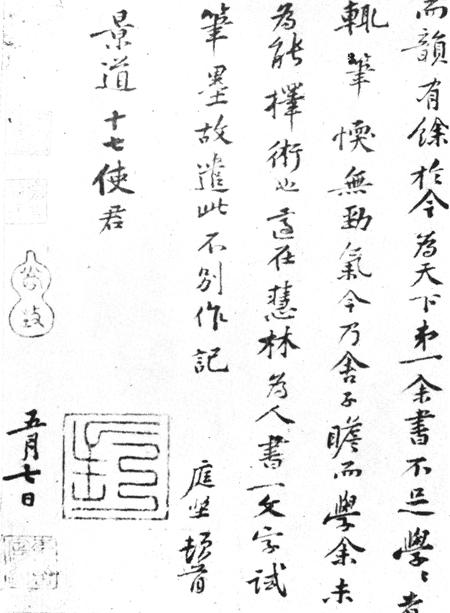 而韻有餘於今為天下第一余書不足學〻者
輒筆愞無勁氣今乃舍子瞻而學余未
為能擇術也適在慧林為人書一文字試
筆墨故遣此不別作記
庭堅頓首
景道十七使君
五月七日